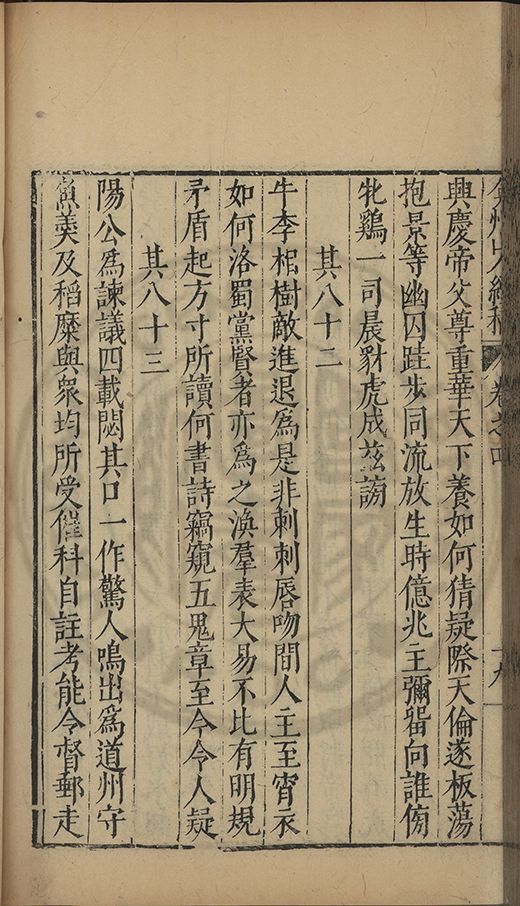 弇州山人續稿 卷之四 十九
興慶帝父尊重華天下養如何猜疑際天倫遂板蕩
抱景等幽囚跬步同流放生時億兆主彌留向誰傍
牝鷄一司晨豺虎成玆謗
其八十二
牛李相樹敵進退爲是非刺刺唇吻間人主至宵衣
如何洛蜀黨賢者亦爲之渙羣表大易不比有明規
矛盾起方寸所讀何書詩竊窺五鬼章至今令人疑
其八十三
陽公爲諫議四載閟其口一作驚人鳴出爲道州守
魚羮及稻糜與衆均所受催科自註考能令督郵走